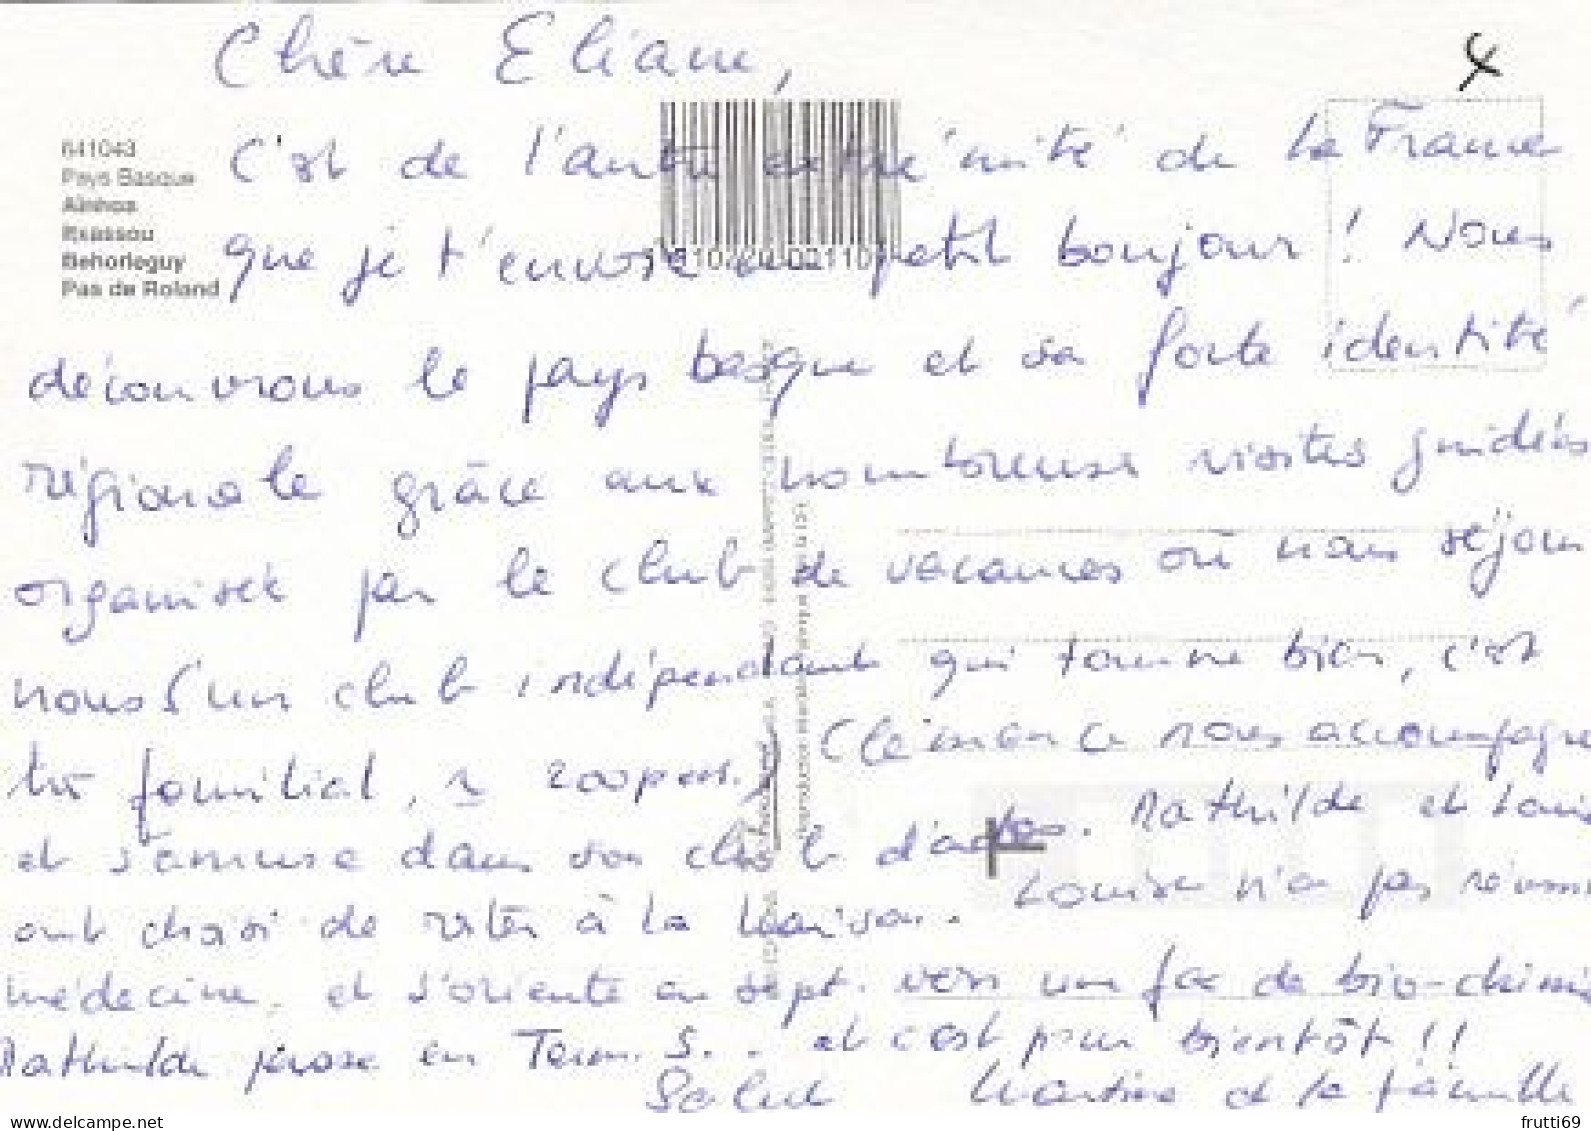 4
Chère Eliane,
641043
Pays Basque
Ainhoa
Itxassou
Behorleguy
Pas de Roland
C'est de l'autre extrémité de la France
que je t'envoie un petit bonjour ! Nous
découvrons le pays basque et sa forte identité
régionale grâce aux nombreuses visites guidées
organisées par le club de vacances où nous séjour
nous un club indépendant qui tourne bien, c'est
très familial, 200 pers.) Clémence nous accompagne
et s'amuse dans son club d'ados. Mathilde et Louise
ont choisi de rester à la maison. Louise n'a pas réussi
médecine, et s'oriente en sept. vers un fac de bio-chimie
Mathilde passe en Term. S.. et c'est pour bientôt !!
Salut Martine et la famille
frutti69